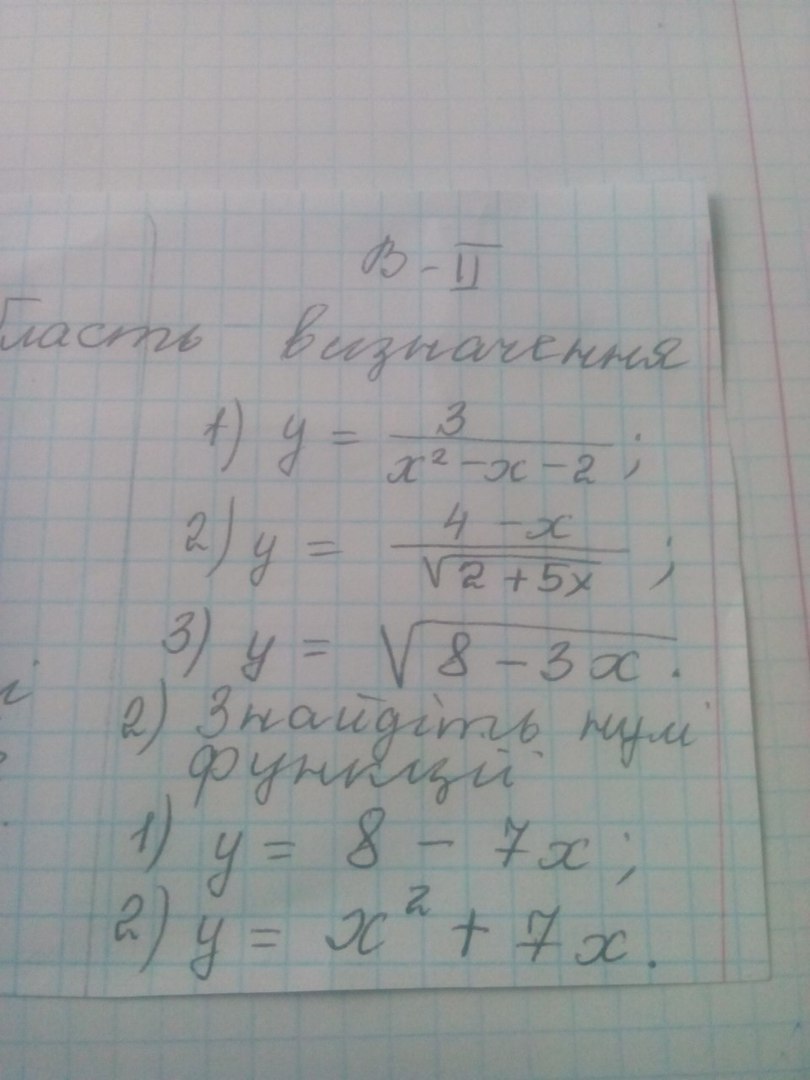 В - II
бласть визначення
1) y = 3 / (x² - x - 2) ;
2) y = (4 - x) / √(2 + 5x) ;
3) y = √(8 - 3x) .
2) Знайдіть нулі
функції
1) y = 8 - 7x ;
2) y = x² + 7x .